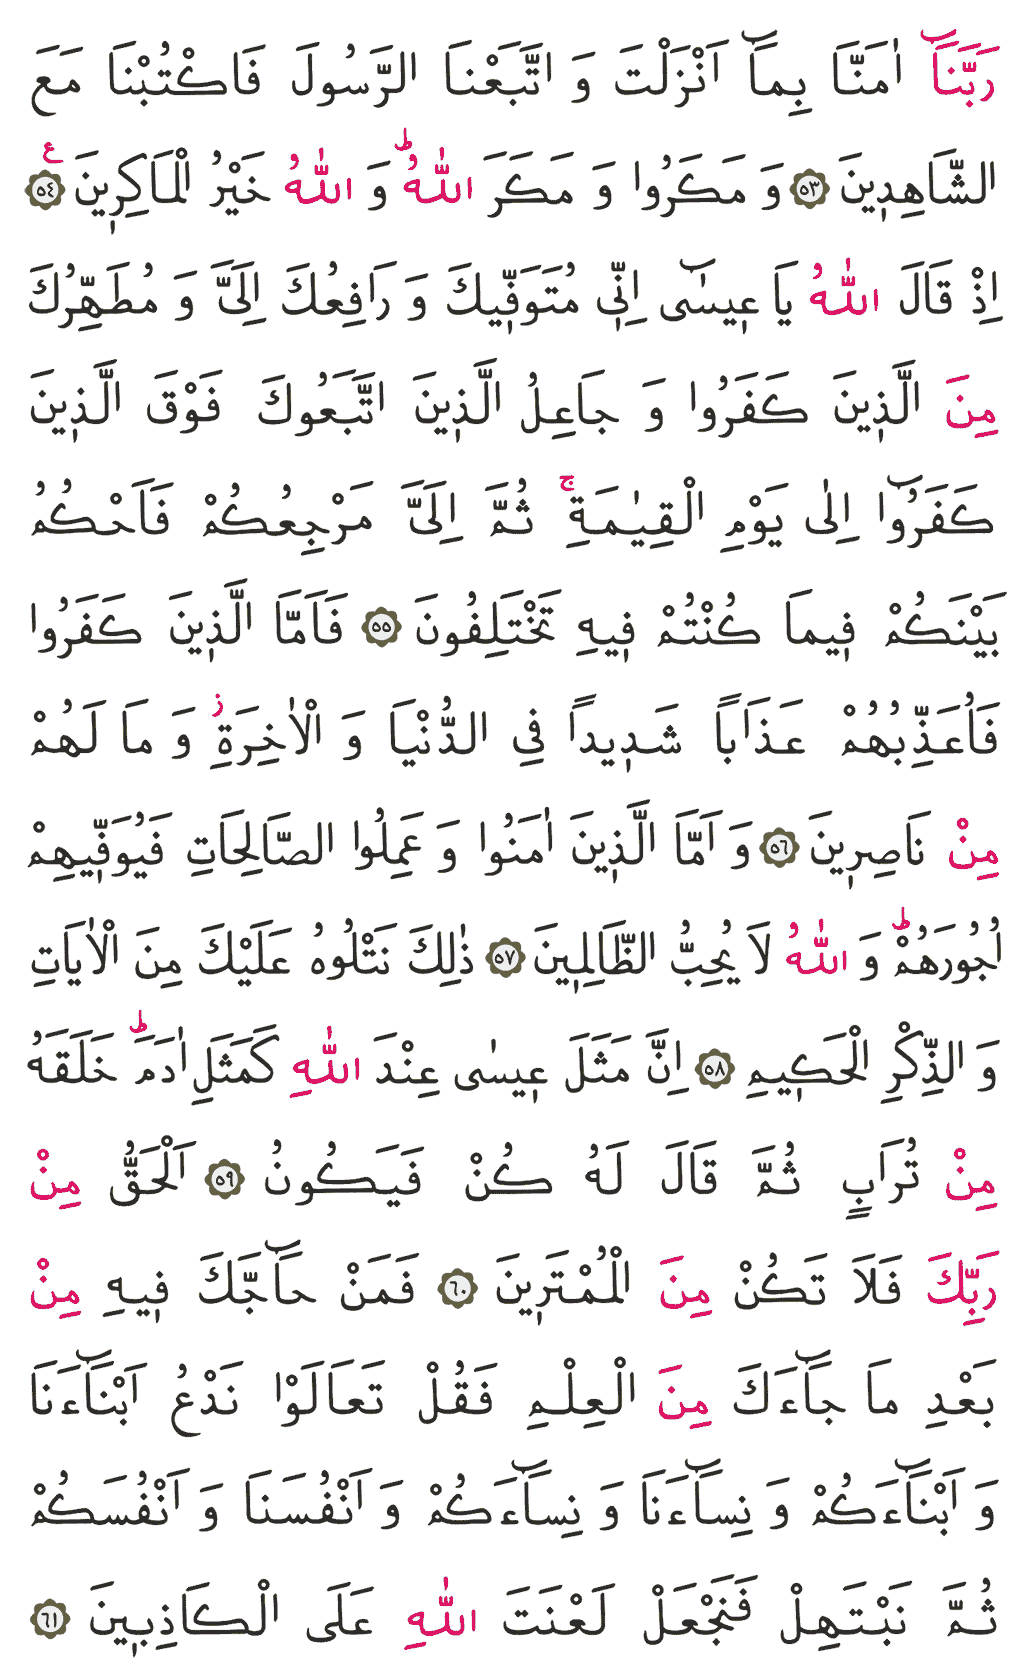 رَبَّنَآ اٰمَنَّا بِمَآ اَنْزَلْتَ وَ اتَّبَعْنَا الرَّسُولَ فَاكْتُبْنَا مَعَ
الشَّاهِدِينَ ﴿٥٣﴾ وَ مَكَرُوا وَ مَكَرَ اللّٰهُ ؕ وَ اللّٰهُ خَيْرُ الْمَاكِرِينَ ع ﴿٥٤﴾
اِذْ قَالَ اللّٰهُ يَا عِيسٰٓى اِنِّي مُتَوَفِّيكَ وَ رَافِعُكَ اِلَيَّ وَ مُطَهِّرُكَ
مِنَ الَّذِينَ كَفَرُوا وَ جَاعِلُ الَّذِينَ اتَّبَعُوكَ فَوْقَ الَّذِينَ
كَفَرُوٓا اِلٰى يَوْمِ الْقِيٰمَةِ ۚ ثُمَّ اِلَيَّ مَرْجِعُكُمْ فَاَحْكُمُ
بَيْنَكُمْ فِيمَا كُنْتُمْ فِيهِ تَخْتَلِفُونَ ﴿٥٥﴾ فَاَمَّا الَّذِينَ كَفَرُوا
فَاُعَذِّبُهُمْ عَذَاباً شَدِيداً فِي الدُّنْيَا وَ الْاٰخِرَةِ ز وَ مَا لَهُمْ
مِنْ نَاصِرِينَ ﴿٥٦﴾ وَ اَمَّا الَّذِينَ اٰمَنُوا وَ عَمِلُوا الصَّالِحَاتِ فَيُوَفِّيهِمْ
اُجُورَهُمْ ؕ وَ اللّٰهُ لَا يُحِبُّ الظَّالِمِينَ ﴿٥٧﴾ ذٰلِكَ نَتْلُوهُ عَلَيْكَ مِنَ الْاٰيَاتِ
وَ الذِّكْرِ الْحَكِيمِ ﴿٥٨﴾ اِنَّ مَثَلَ عِيسٰى عِنْدَ اللّٰهِ كَمَثَلِ اٰدَمَ ؕ خَلَقَهُ
مِنْ تُرَابٍ ثُمَّ قَالَ لَهُ كُنْ فَيَكُونُ ﴿٥٩﴾ اَلْحَقُّ مِنْ
رَبِّكَ فَلَا تَكُنْ مِنَ الْمُمْتَرِينَ ﴿٦٠﴾ فَمَنْ حَآجَّكَ فِيهِ مِنْ
بَعْدِ مَا جَآءَكَ مِنَ الْعِلْمِ فَقُلْ تَعَالَوْا نَدْعُ اَبْنَآءَنَا
وَ اَبْنَآءَكُمْ وَ نِسَآءَنَا وَ نِسَآءَكُمْ وَ اَنْفُسَنَا وَ اَنْفُسَكُمْ
ثُمَّ نَبْتَهِلْ فَنَجْعَلْ لَعْنَتَ اللّٰهِ عَلَى الْكَاذِبِينَ ﴿٦١﴾